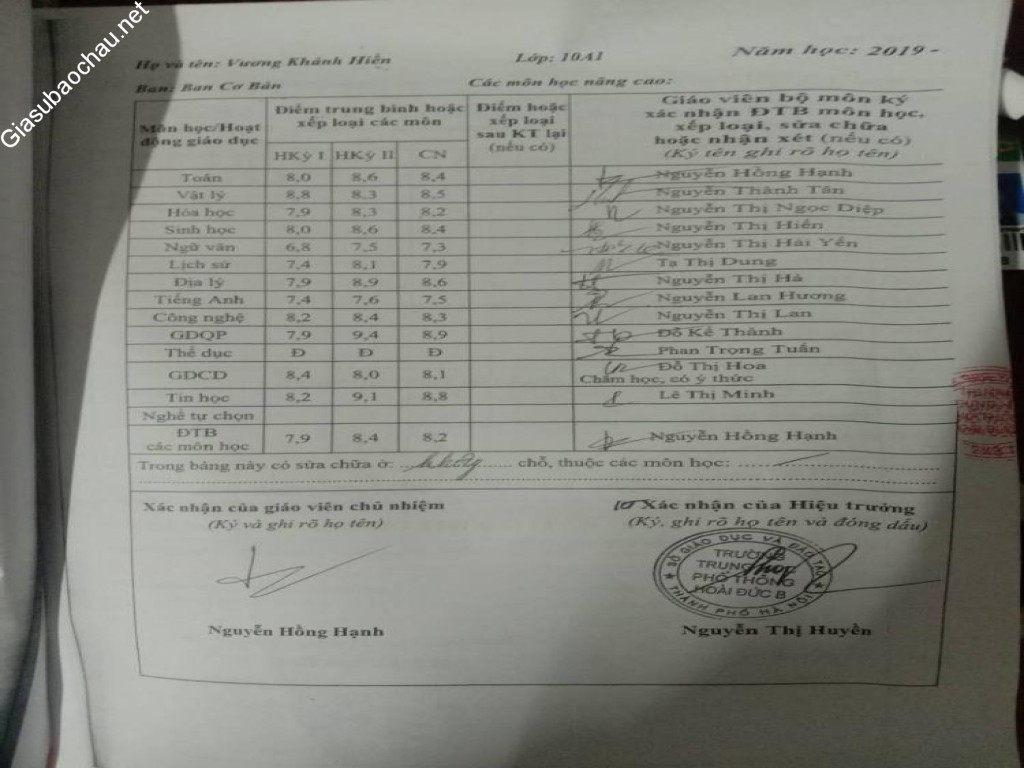 Giasubaochau.net
Họ và tên: Vương Khánh Hiền Lớp: 10A1 Năm học: 2019 -
Ban: Ban Cơ Bản Các môn học nâng cao:
Môn học/Hoạt động giáo dục
Điểm trung bình hoặc xếp loại các môn
HKỳ I HKỳ II CN
Điểm hoặc xếp loại sau KT lại (nếu có)
Giáo viên bộ môn ký
xác nhận ĐTB môn học,
xếp loại, sửa chữa
hoặc nhận xét (nếu có)
(Ký tên ghi rõ họ tên)
Toán 8,0 8,6 8,4 Nguyễn Hồng Hạnh
Vật lý 8,8 8,3 8,5 Nguyễn Thành Tân
Hóa học 7,9 8,3 8,2 Nguyễn Thị Ngọc Diệp
Sinh học 8,0 8,6 8,4 Nguyễn Thị Hiền
Ngữ văn 6,8 7,5 7,3 Nguyễn Thị Hải Yến
Lịch sử 7,4 8,1 7,9 Tạ Thị Dung
Địa lý 7,9 8,9 8,6 Nguyễn Thị Hà
Tiếng Anh 7,4 7,6 7,5 Nguyễn Lan Hương
Công nghệ 8,2 8,4 8,3 Nguyễn Thị Lan
GDQP 7,9 9,4 8,9 Đỗ Kế Thành
Thể dục Đ Đ Đ Phan Trọng Tuấn
GDCD 8,4 8,0 8,1 Đỗ Thị Hoa
Chăm học, có ý thức
Tin học 8,2 9,1 8,8 Lê Thị Minh
Nghề tự chọn
ĐTB các môn học 7,9 8,4 8,2 Nguyễn Hồng Hạnh
Trong bảng này có sửa chữa ở: không chỗ, thuộc các môn học:
Xác nhận của giáo viên chủ nhiệm
(Ký và ghi rõ họ tên)
Xác nhận của Hiệu trưởng
(Ký, ghi rõ họ tên và đóng dấu)
SỞ GIÁO DỤC VÀ ĐÀO TẠO
TRƯỜNG
TRUNG HỌC
PHỔ THÔNG
HOÀI ĐỨC B
THÀNH PHỐ HÀ NỘI
Nguyễn Hồng Hạnh
Nguyễn Thị Huyền